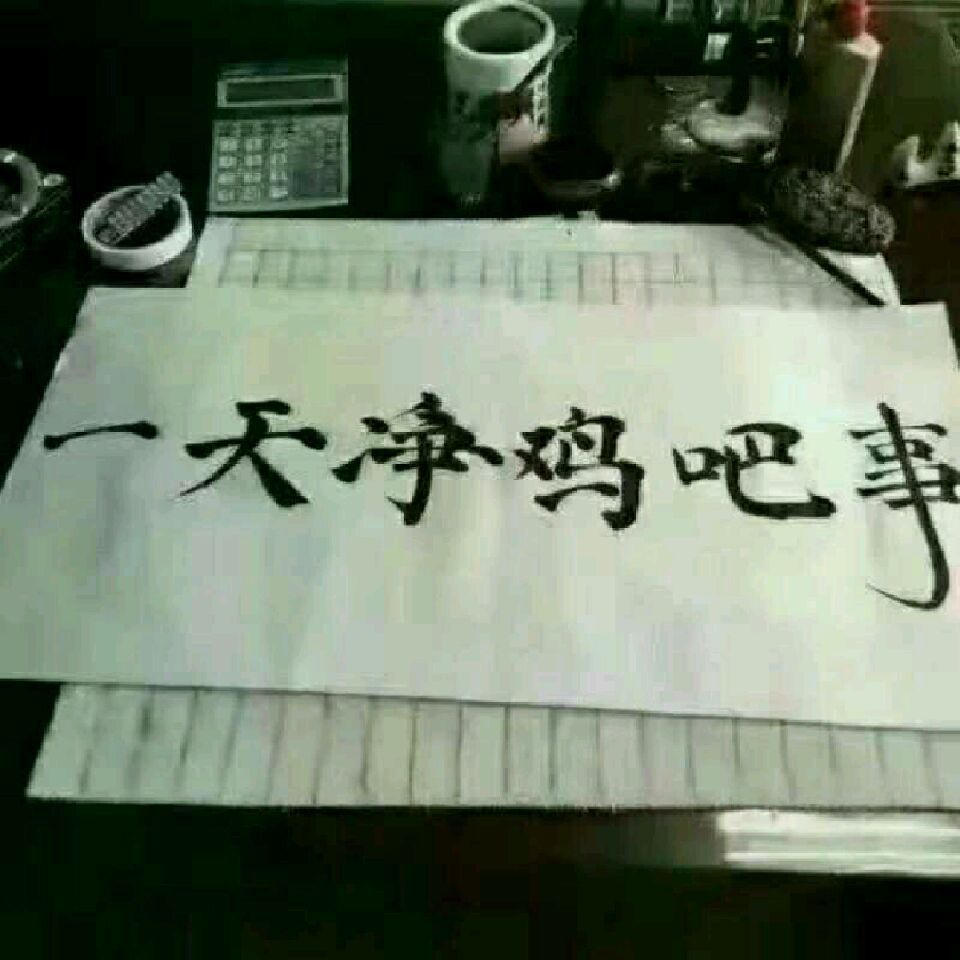 一天净鸡吧事